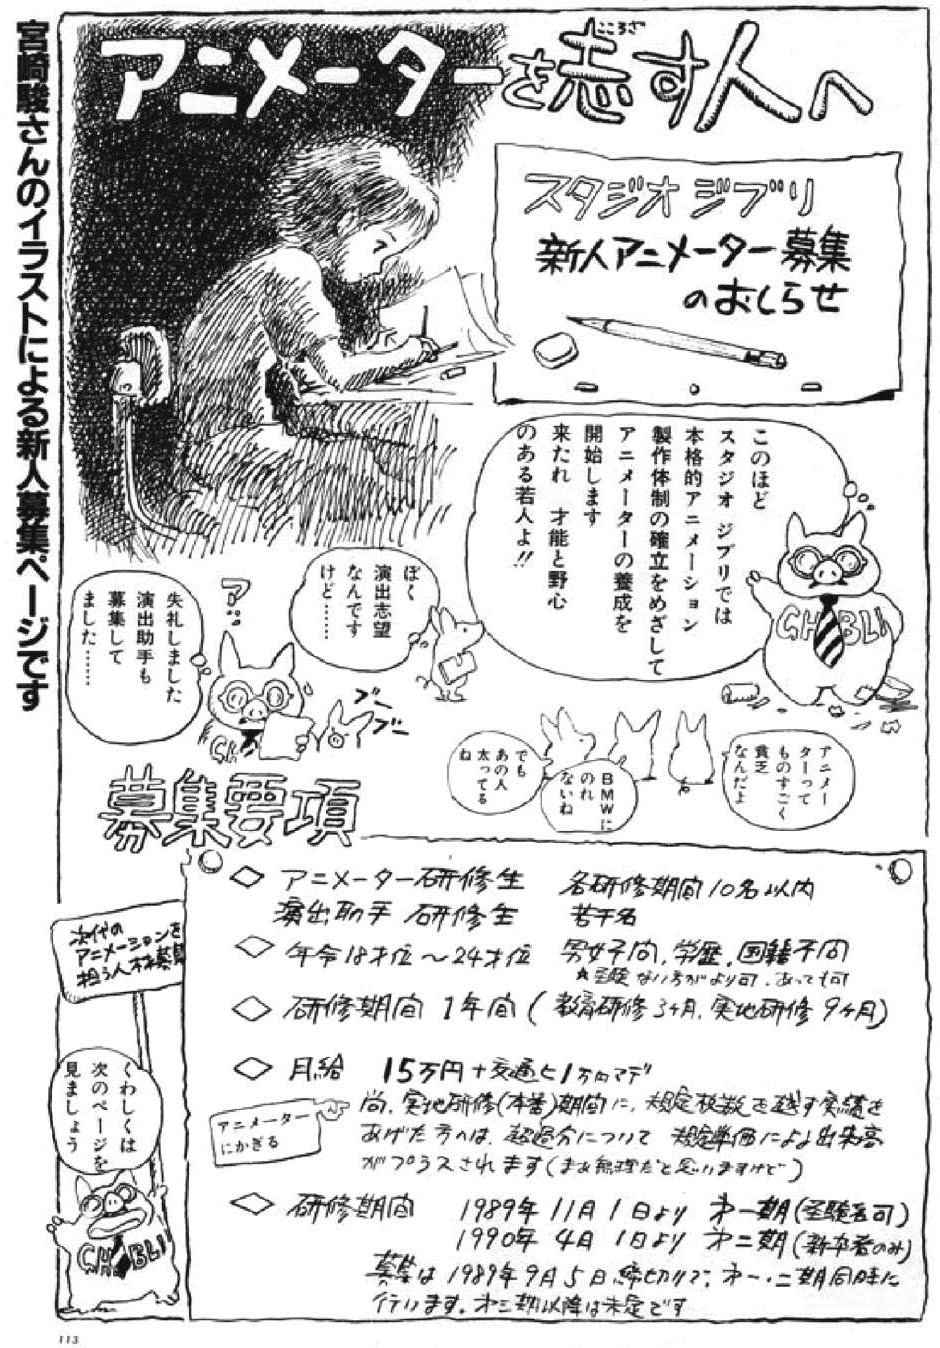 宮崎駿さんのイラストによる新人募集ページです
アニメーターを志す人へ
こころざ
スタジオ ジブリ
新人アニメーター募集
のおしらせ
このほど
スタジオ ジブリでは
本格的アニメーション
製作体制の確立をめざして
アニメーターの養成を
開始します
来たれ 才能と野心
のある若人よ!!
GHIBLI
ぼく
演出志望
なんです
けど……
ア…
失礼しました
演出助手も
募集して
ました……
ブー
ブー
アニメー
ターって
ものすごく
貧乏
なんだよ
BMWに
のれ
ないね
でも
あの人
太ってる
ね
募集要項
◇ アニメーター研修生 各研修期間10名以内
演出助手 研修生 若干名
◇ 年令18才位〜24才位 男女不問、学歴、国籍不問
*経験ない方がより可、あっても可
◇ 研修期間 1年間(教育研修3ヶ月、実地研修9ヶ月)
◇ 月給 15万円+交通ヒ1万円マデ
アニメーター
にかぎる
尚、実地研修(本番)期間に、規定枚数を越す実績を
あげた方のは、超過分について 規定単価による出来高
がプラスされます(まあ無理だと思いますけど)
◇ 研修期間 1989年11月1日より 才一期(経験者可)
1990年4月1日より 才二期(新卒者のみ)
募集は1989年9月5日締切りで、才一・二期同時に
行います。才三期以降は未定です
次代の
アニメーションを
担う人材募集
くわしくは
次のページを
見ましょう
GHIBLI
113